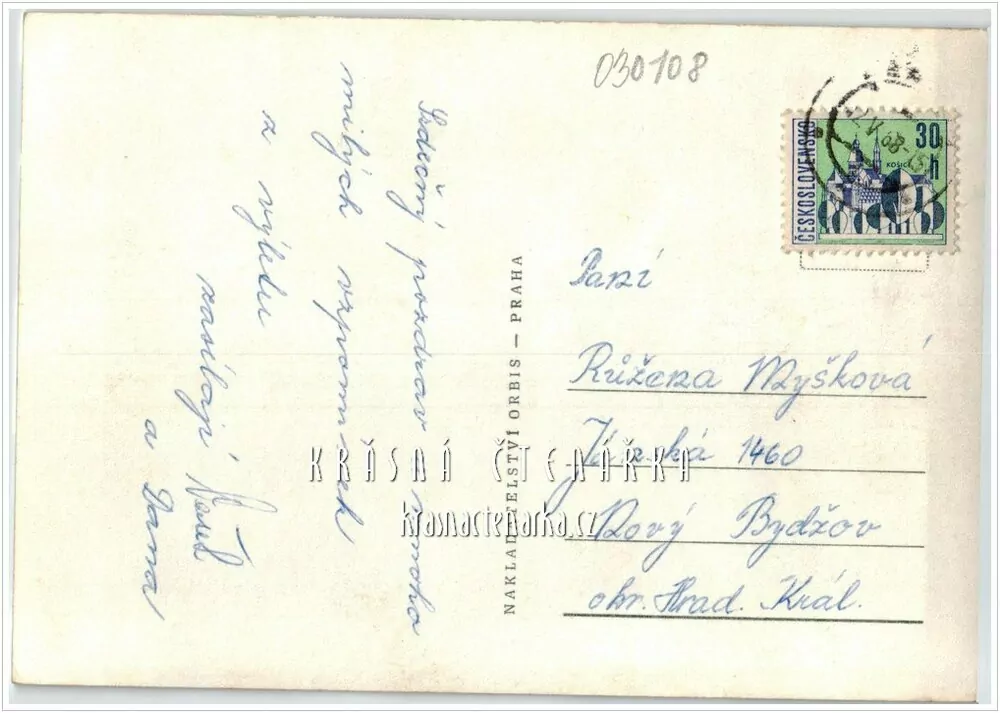 030108
Srdečný pozdrav a mnoho
milých vzpomínek
z výletu
zasílají
a Dana
NAKLADATELSTVÍ ORBIS – PRAHA
ČESKOSLOVENSKO
30
h
KOŠICE
Paní
Růžena Myšková
1460
Nový Bydžov
okr. Hrad. Král.
KRÁSNÁ ČTENÁŘKA
krasnactenarka.cz